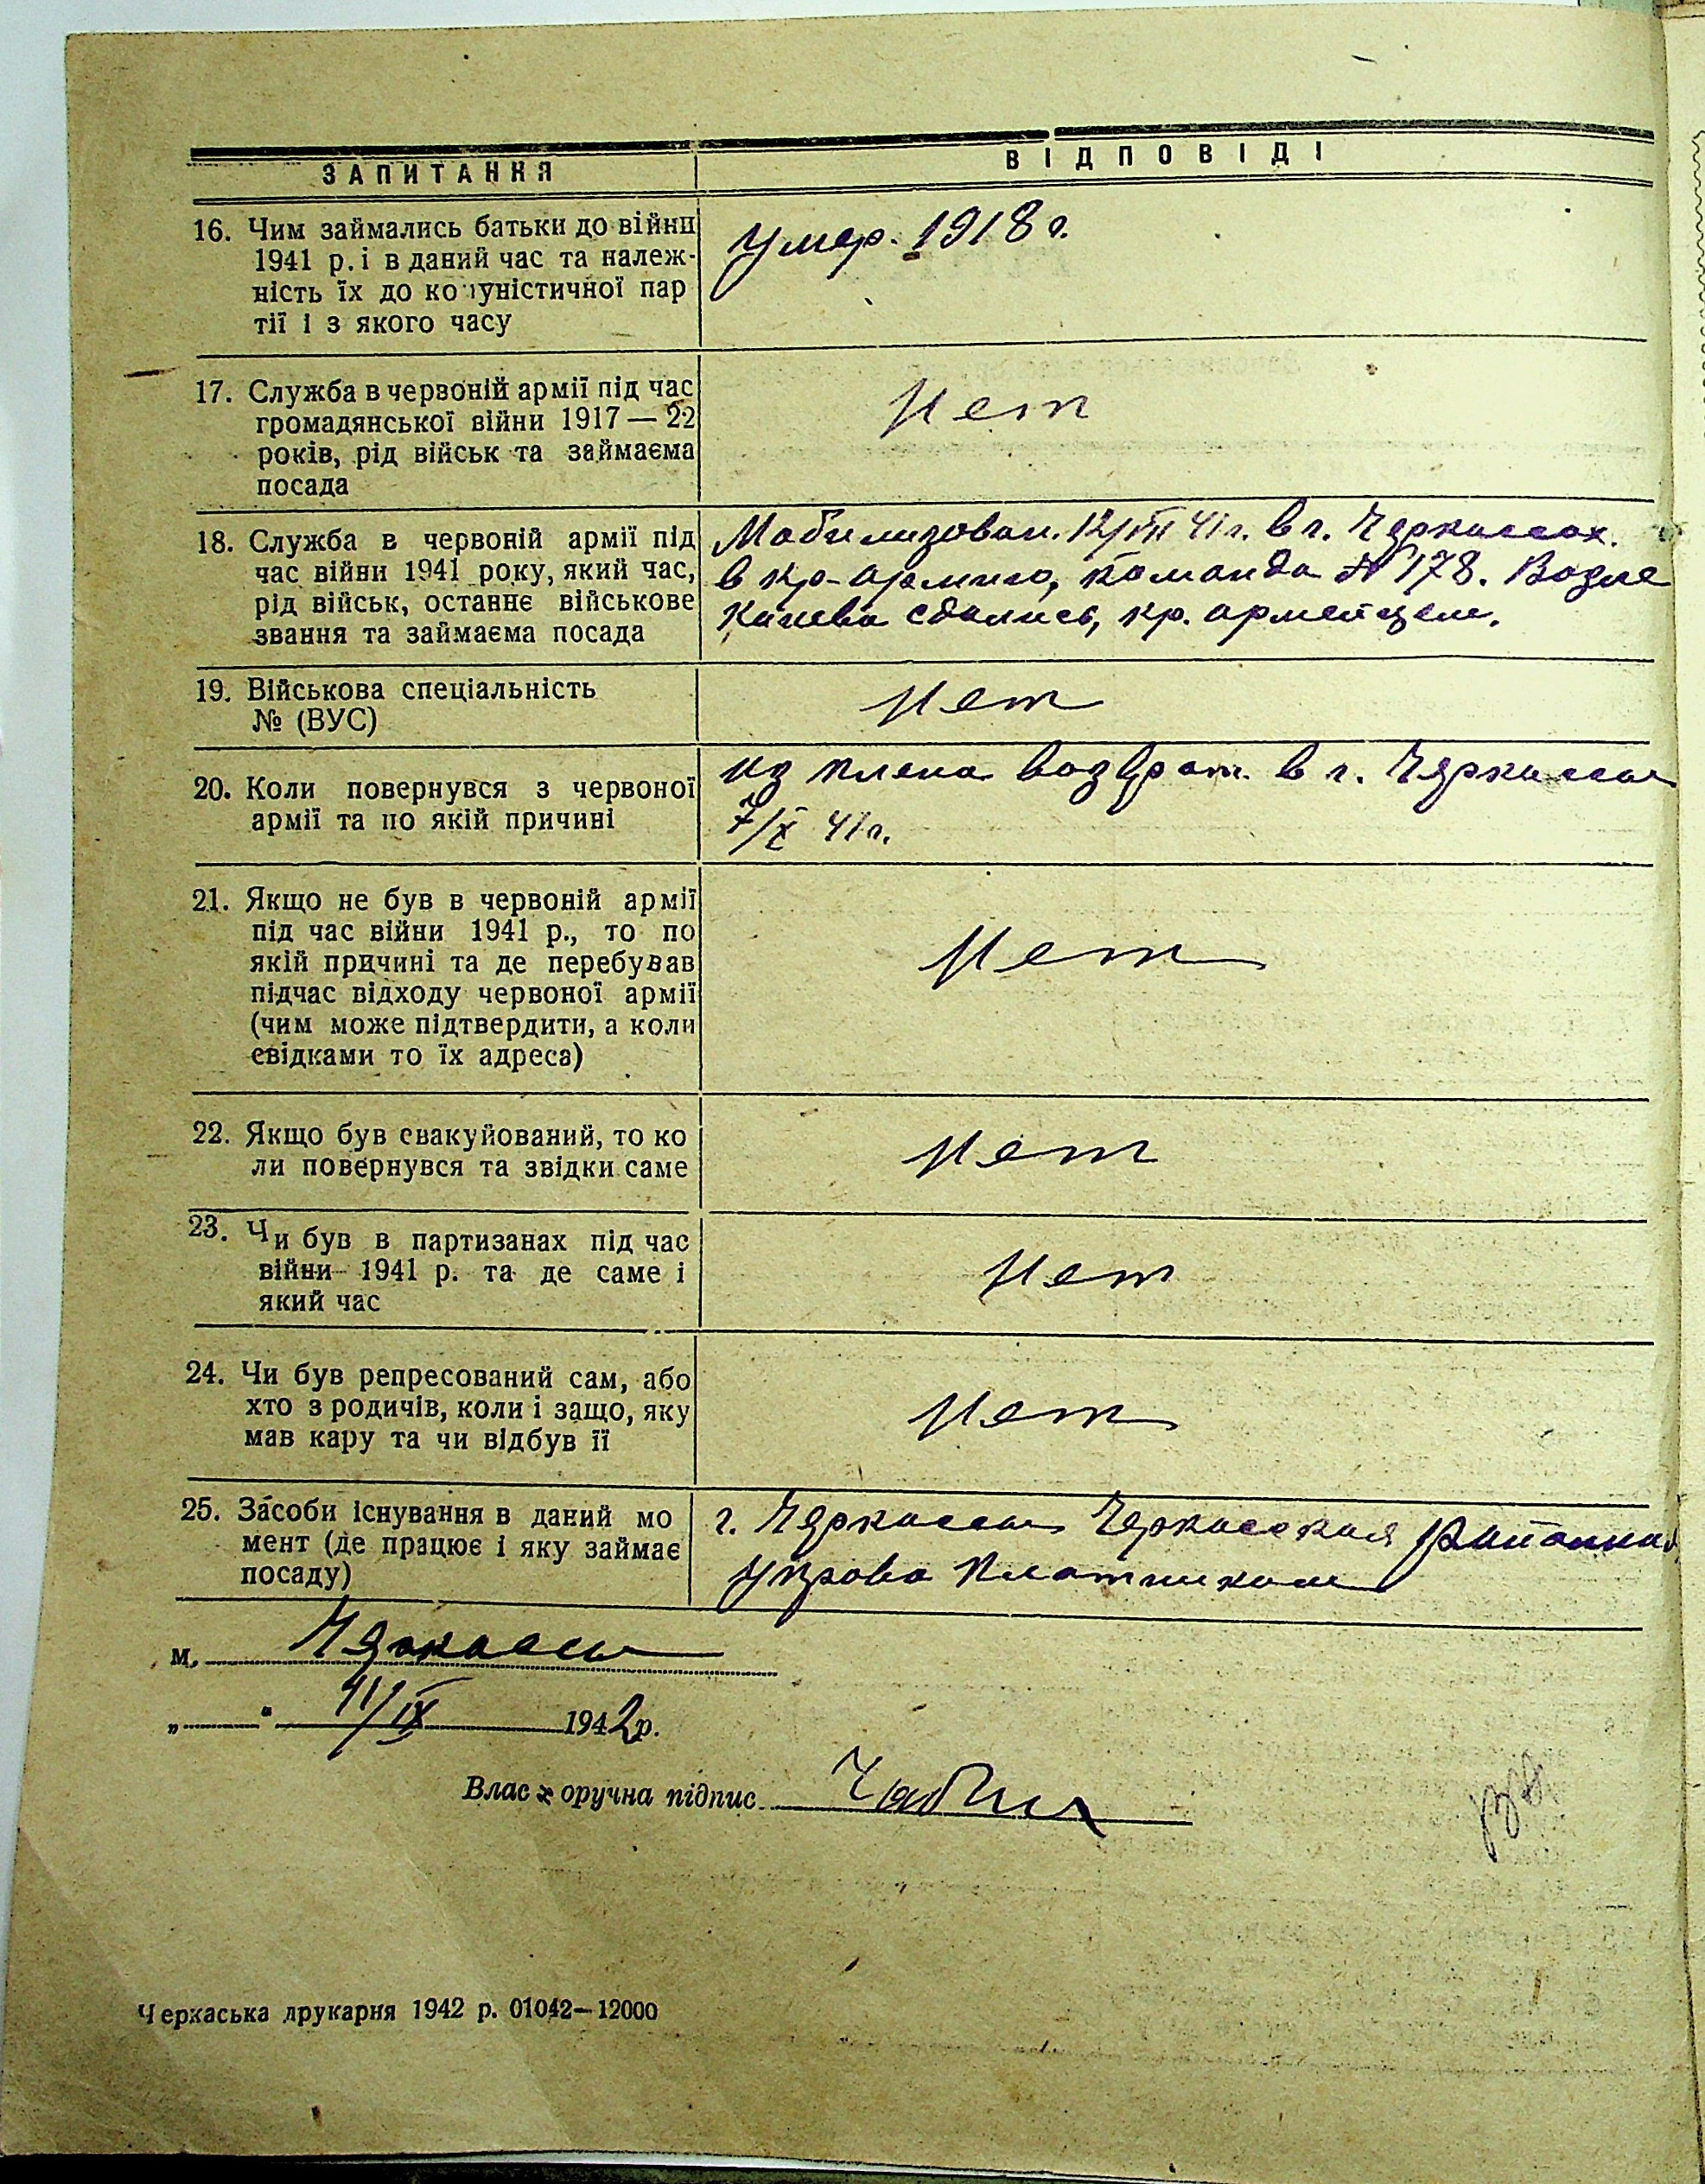 ЗАПИТАННЯ
ВІДПОВІДІ
16. Чим займались батьки до війни
1941 р. і в даний час та належ-
ність їх до комуністичної пар
тії і з якого часу
Умер. 1918 г.
17. Служба в червоній армії під час
громадянської війни 1917 — 22
років, рід військ та займаєма
посада
Нет
18. Служба в червоній армії під
час війни 1941 року, який час,
рід військ, останнє військове
звання та займаєма посада
Мобилизован. 12/VII 41 г. в г. Черкассах.
в кр-армию, команда № 178. Возле
Киева сдались, кр. армейцем.
19. Військова спеціальність
№ (ВУС)
Нет
20. Коли повернувся з червоної
армії та по якій причині
из плена возврат. в г. Черкассы
7/X 41 г.
21. Якщо не був в червоній армії
під час війни 1941 р., то по
якій причині та де перебував
підчас відходу червоної армії
(чим може підтвердити, а коли
свідками то їх адреса)
Нет
22. Якщо був евакуйований, то ко
ли повернувся та звідки саме
Нет
23. Чи був в партизанах під час
війни 1941 р. та де саме і
який час
Нет
24. Чи був репресований сам, або
хто з родичів, коли і защо, яку
мав кару та чи відбув її
Нет
25. Засоби існування в даний мо
мент (де працює і яку займає
посаду)
г. Черкассы Черкасская
Управа Плотником
м. Черкассы
„ “ /IX 1942 р.
Власноручна підпис
Черкаська друкарня 1942 р. 01042—12000